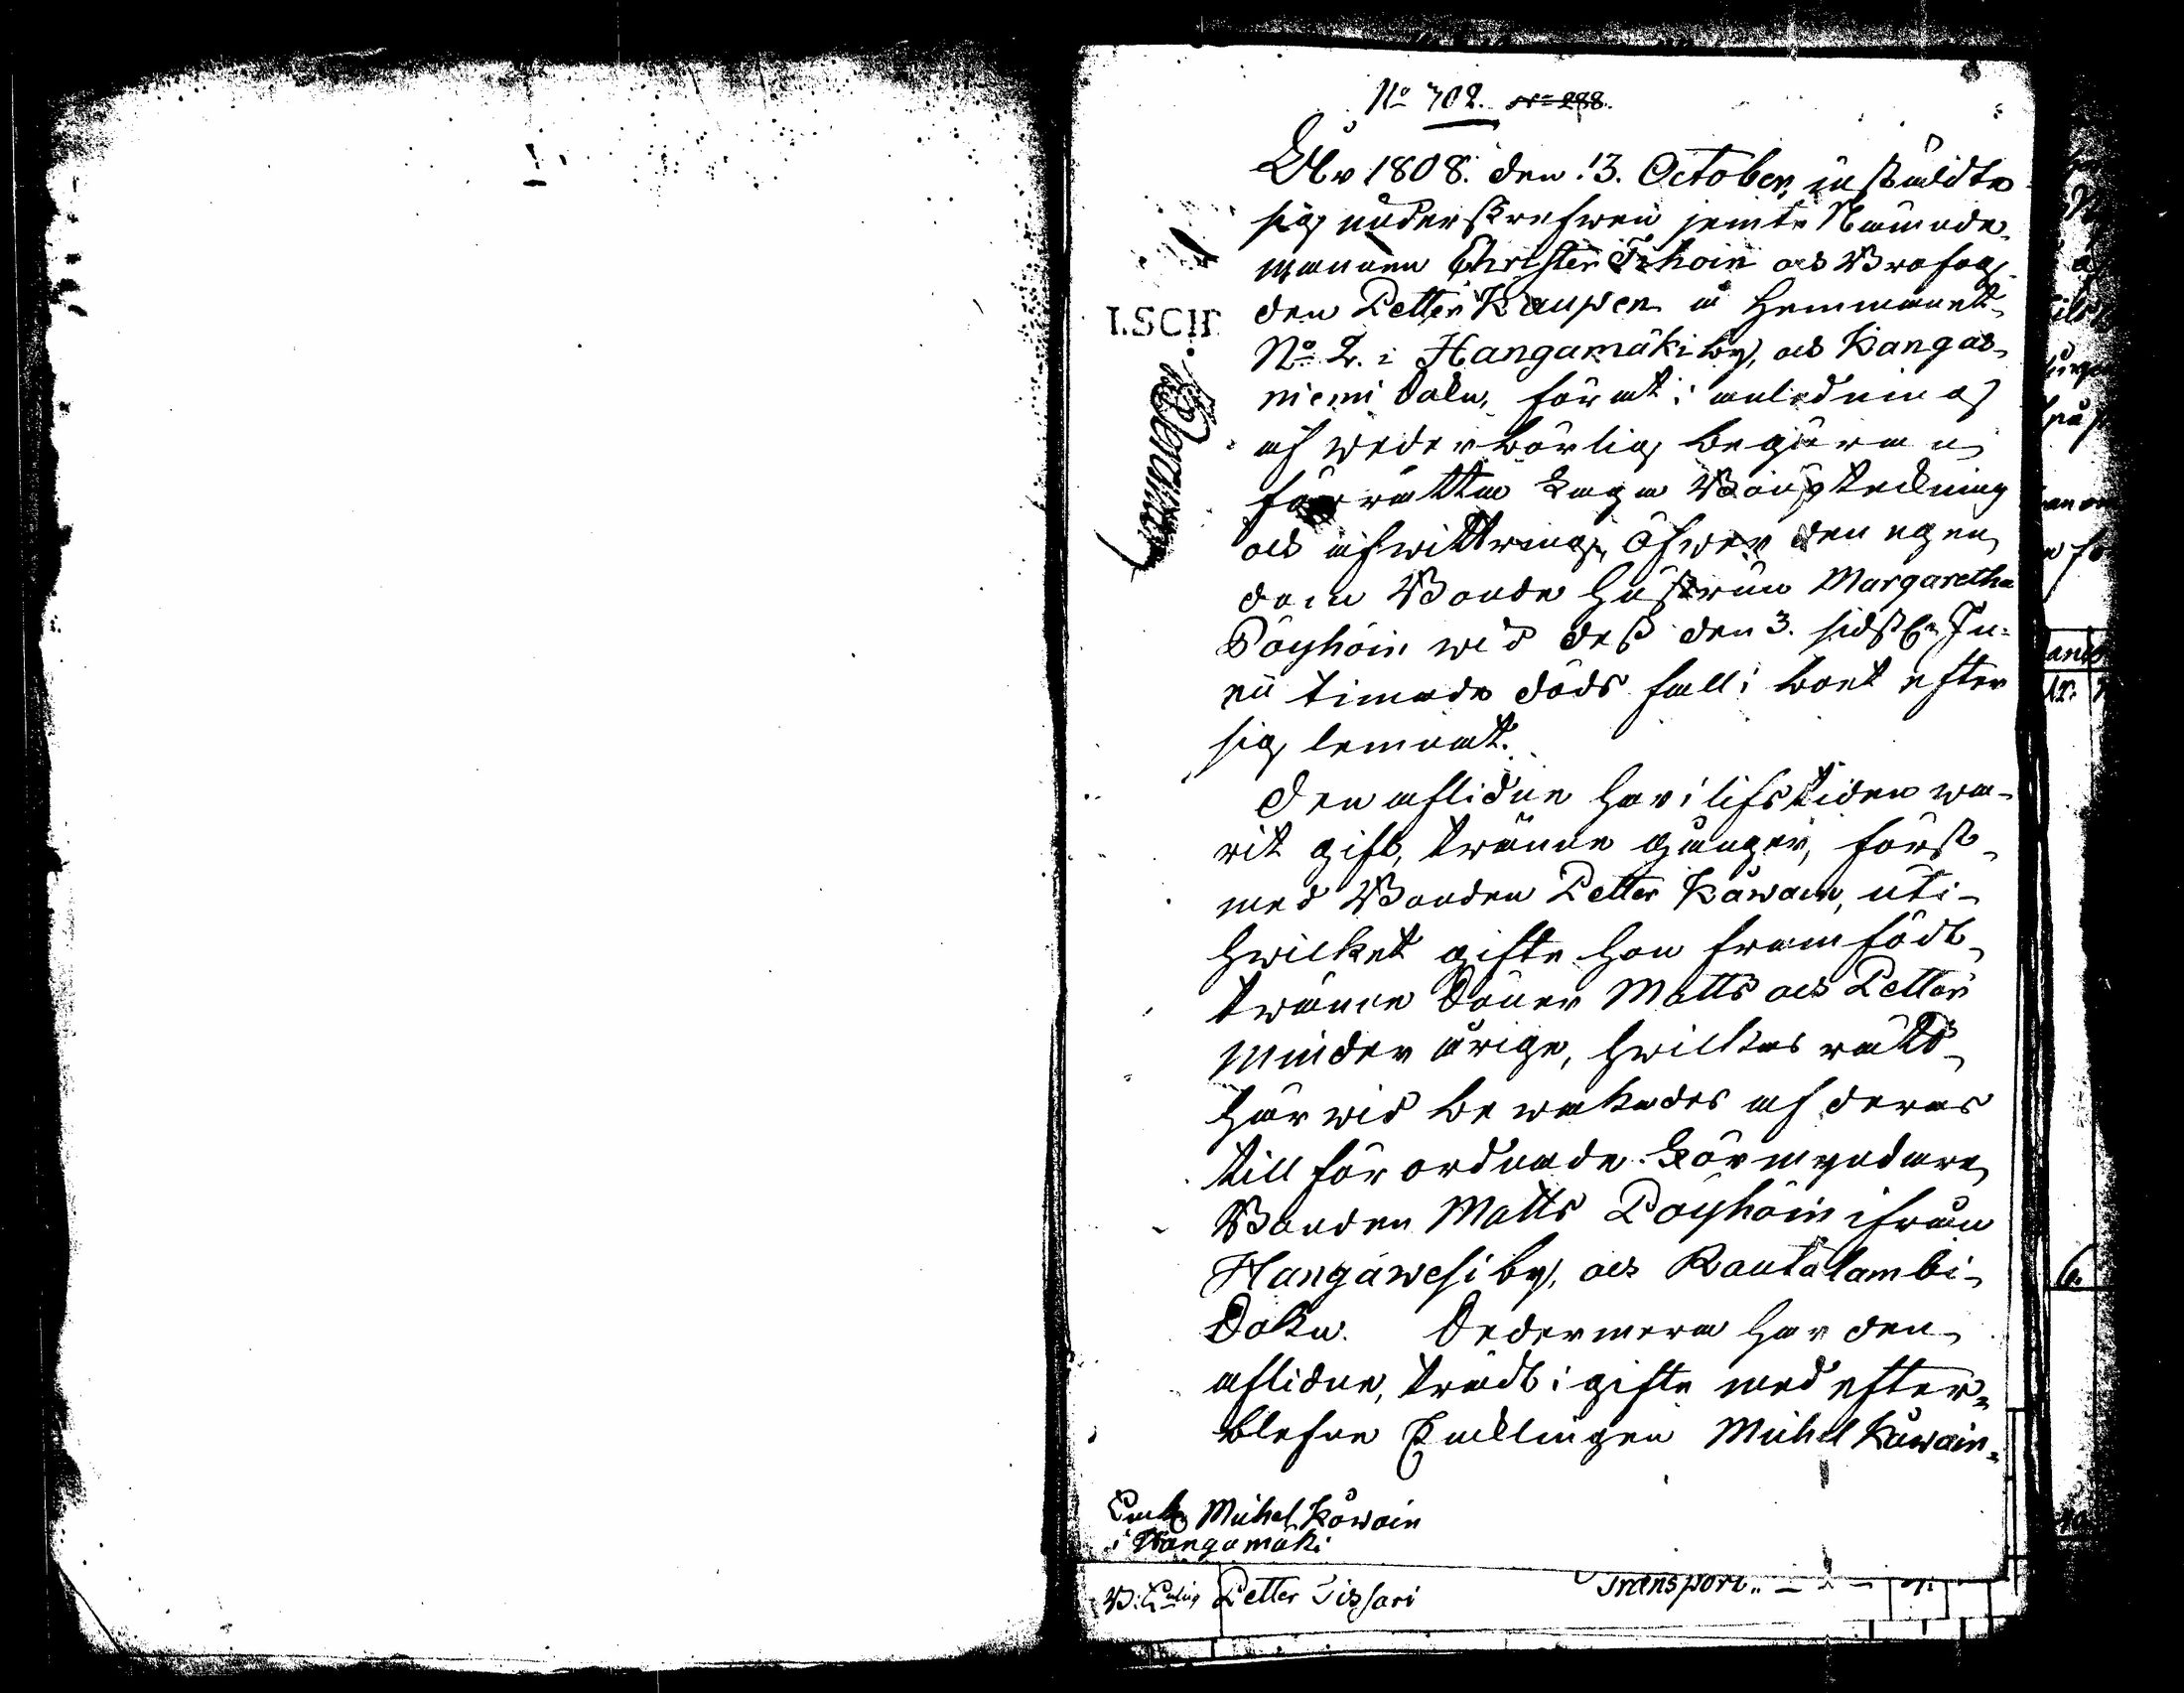 No 702. No 288.
Åhr 1808. den 13. October, instälde
sig underskrefwen jemte Nämnde-
mannen Christer Ihoin och Brofog-
den Petter Kaupen å Hemmanet
No 2. i Hangamäki by, och Kangas-
niemi Sokn, för at i anledning
af wederbörlig begäran
förrätta Laga Bouptekning
och afwittring, öfwer den egen
dom Bonde Hustrun Margaretha
Pöyhöin wid dess den 3. sidstl. Ju-
nii timade döds fall i boet efter
sig lemnat.
Den aflidne har i lifstiden wa-
rit gift, twänne gånger, först
med Bonden Petter Käwäin, uti
hwilket gifte hon framfödt
twänne Söner Matts och Petter
minder årige, hwilkas rätt
härwid bewakades af deras
till förordnade Förmyndare
Bonden Matts Pöyhöin ifrån
Hangawesi by, och Rautalambi
Sokn. Sedermera har den
aflidne, trädt i gifte med efter-
blefne Encklingen Michel Käwäin
Enck. Michel Käwäin
i Hangamäki
Petter Tissari
Transport..